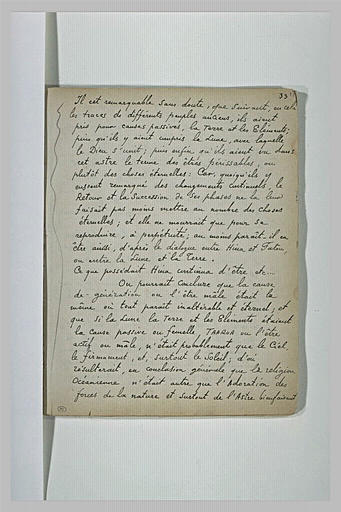 33
Il est remarquable sans doute, que suivant, en cela
les traces de différents peuples anciens, ils aient
pris pour causes passives, la Terre et les Eléments;
puis qu'ils y aient compris la Lune, avec laquelle
le Dieu s'unit; puis enfin qu'ils aient vu dans
cet astre le terme des êtres périssables, ou
plutôt des choses éternelles: Car, quoiqu'ils y
eussent remarqué des changements continuels, le
Retour et la Succession de ses phases ne la leur
faisait pas moins mettre au nombre des choses
éternelles; et elle ne mourrait que pour se
reproduire, à perpétuité; au moins paraît-il en
être ainsi, d'après le dialogue entre Hina et Fatou,
ou entre la Lune et la Terre.
Ce que possédait Hina continua d'être etc...
On pourrait conclure que la cause
de génération ou l'être mâle était la
même où tout paraît inaltérable et éternel; et
que si la Lune la Terre et les Eléments étaient
la cause passive ou femelle, TAAROA ou l'être
actif ou mâle, n'était probablement que le Ciel,
le firmament, et, surtout le Soleil; d'où
résulterait, en conclusion générale que la religion
Océanienne n'était autre que l'Adoration des
forces de la nature et surtout de l'Astre bienfaisant